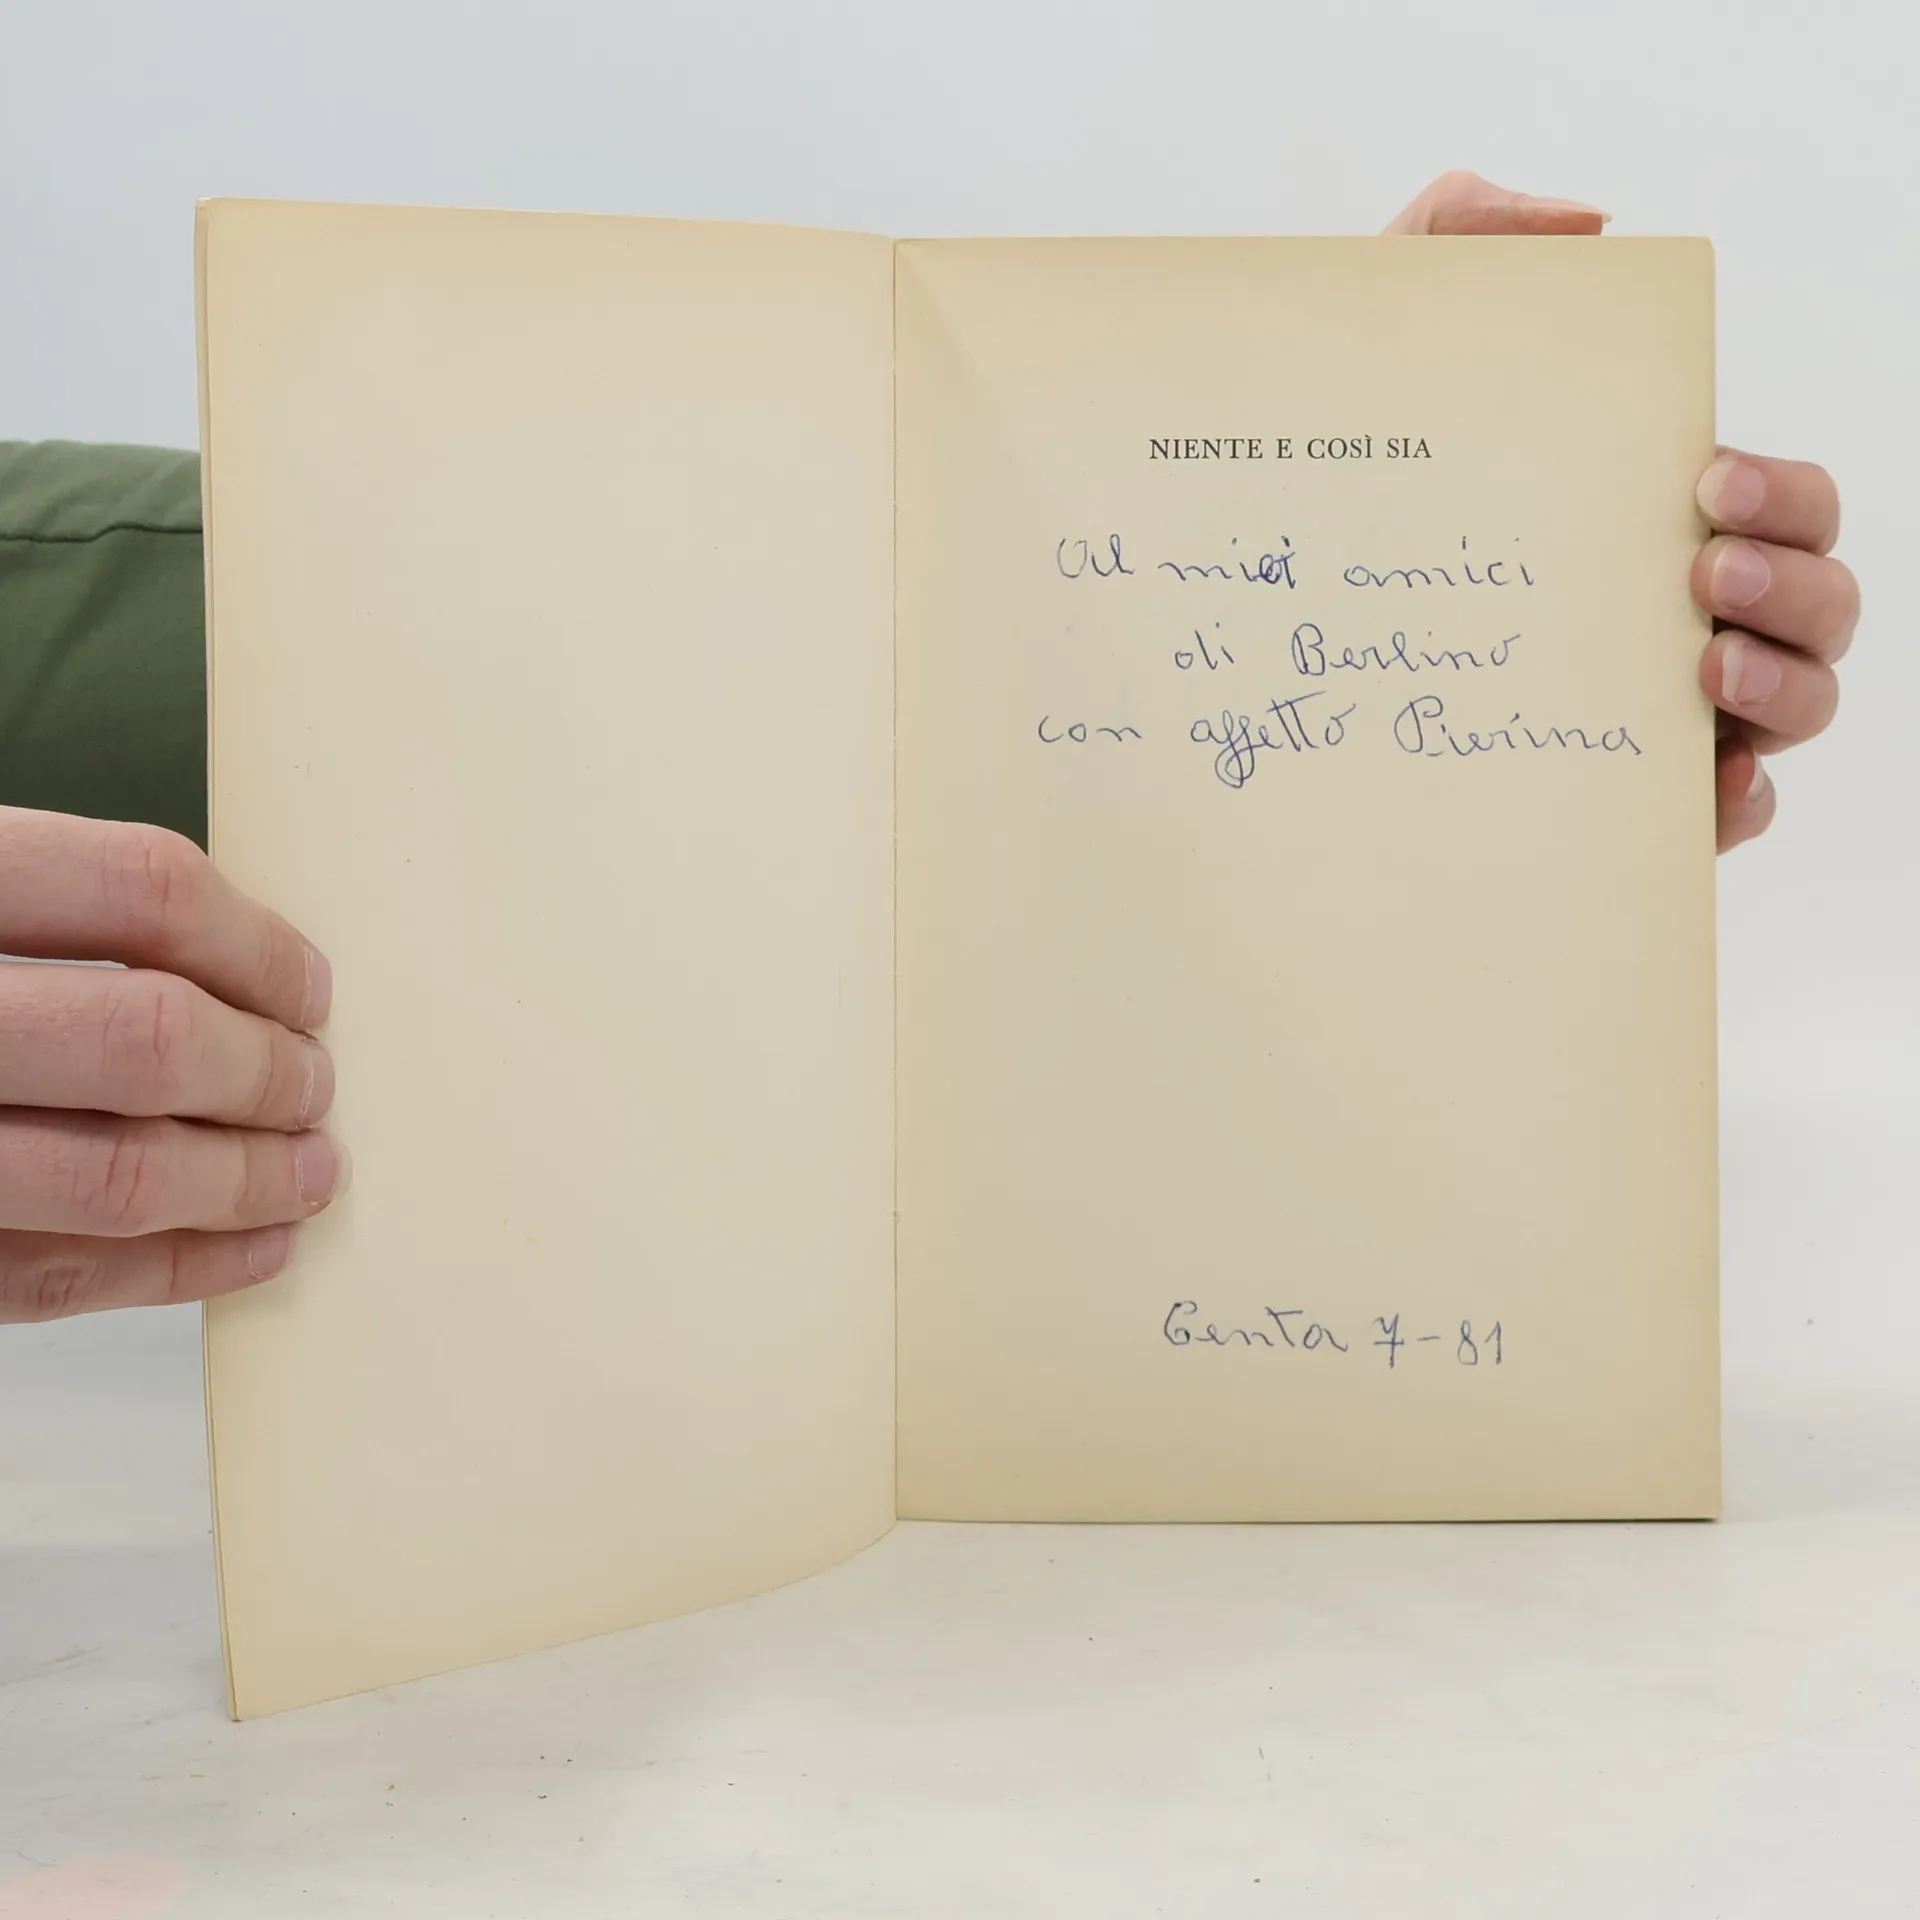 NIENTE E COSÌ SIA
Al miei amici
di Berlino
con affetto Pierina
Centa 7-81